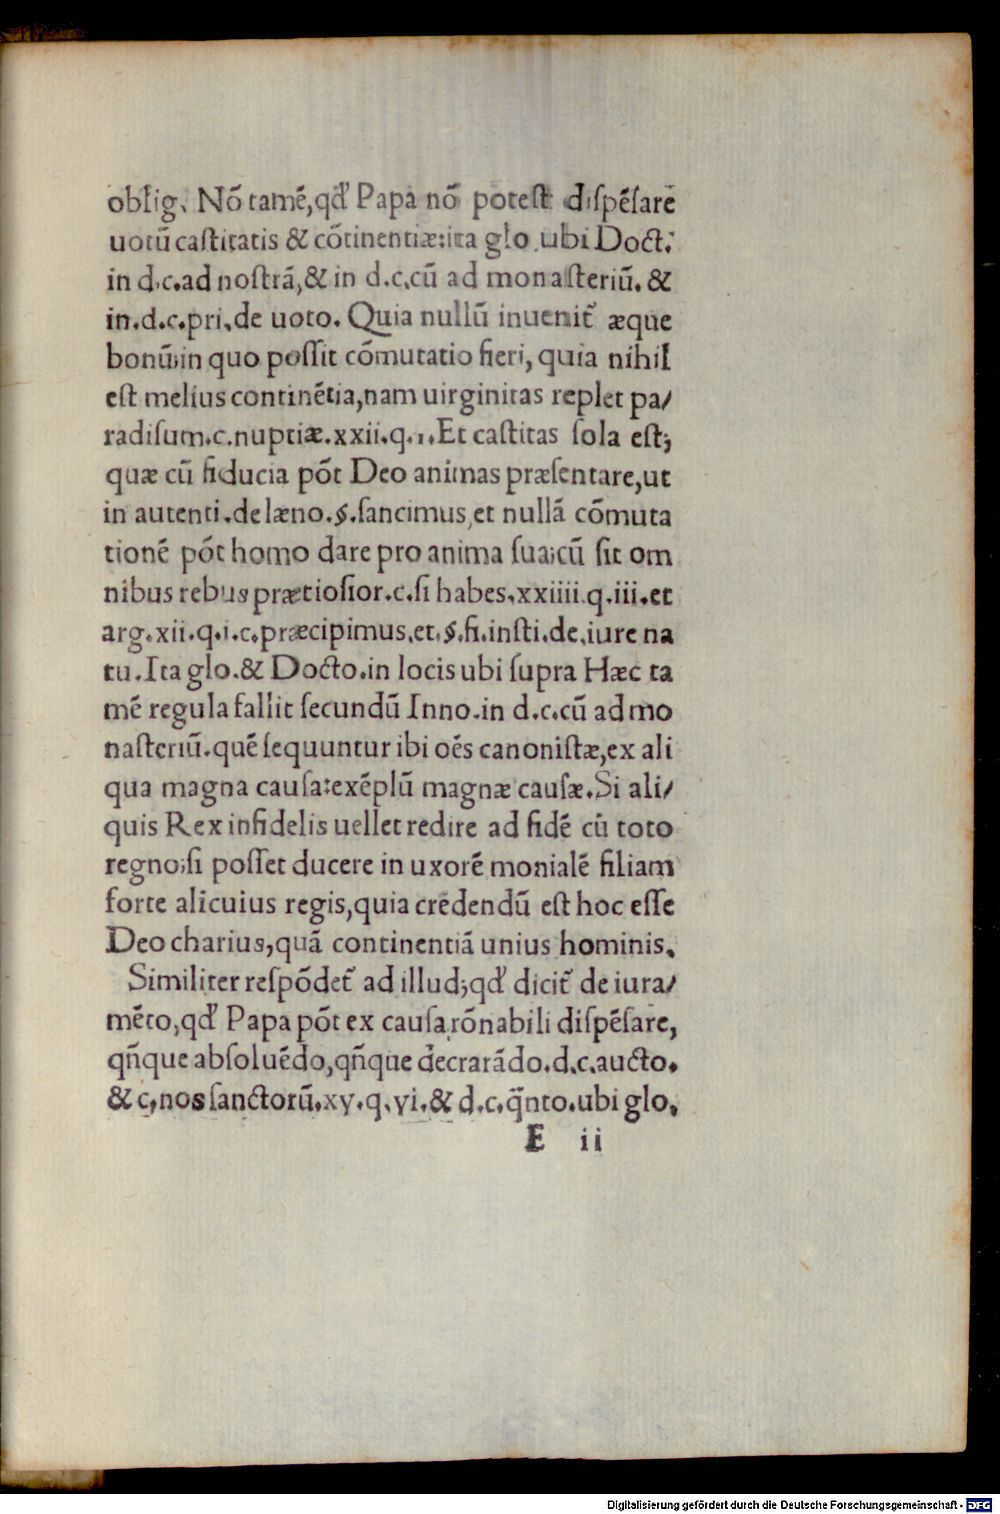 oblig. Nō tamē,qđ Papa nō potest dispēsare
uotū castitatis & cōtinentiæ:ita glo.ubi Doct.
in d.c.ad nostrā,& in d.c.cū ad monasteriū.&
in.d.c.pri.de uoto. Quia nullū inuenit̃ æque
bonū;in quo possit cōmutatio fieri, quia nihil
est melius continētia,nam uirginitas replet pa/
radisum.c.nuptiæ.xxii.q.1.Et castitas sola est;
quæ cū fiducia pōt Deo animas præsentare,ut
in autenti.de læno.§.sancimus,et nullā cōmuta
tionē pōt homo dare pro anima sua;cū sit om
nibus rebus prætiosior.c.si habes.xxiiii.q.iii.et
arg.xii.q.i.c.præcipimus.et.§.fi.insti.de.iure na
tu.Ita glo.& Docto.in locis ubi supra Hæc ta
mē regula fallit secundū Inno.in d.c.cū ad mo
nasteriū.quē sequuntur ibi oēs canonistæ,ex ali
qua magna causa:exēplū magnæ causæ.Si ali/
quis Rex infidelis uellet redire ad fidē cū toto
regno;si posset ducere in uxorē monialē filiam
forte alicuius regis,quia credendū est hoc esse
Deo charius,quā continentiā unius hominis.
Similiter respōdet̃ ad illud;qđ dicit̃ de iura/
mēto,qđ Papa pōt ex causa rōnabili dispēsare,
qñque absoluēdo,qñque decrarādo.d.c.aucto.
& c.nos sanctorū.xv.q.vi.& d.c.q̄nto.ubi glo.
E ii
Digitalisierung gefördert durch die Deutsche Forschungsgemeinschaft - DFG